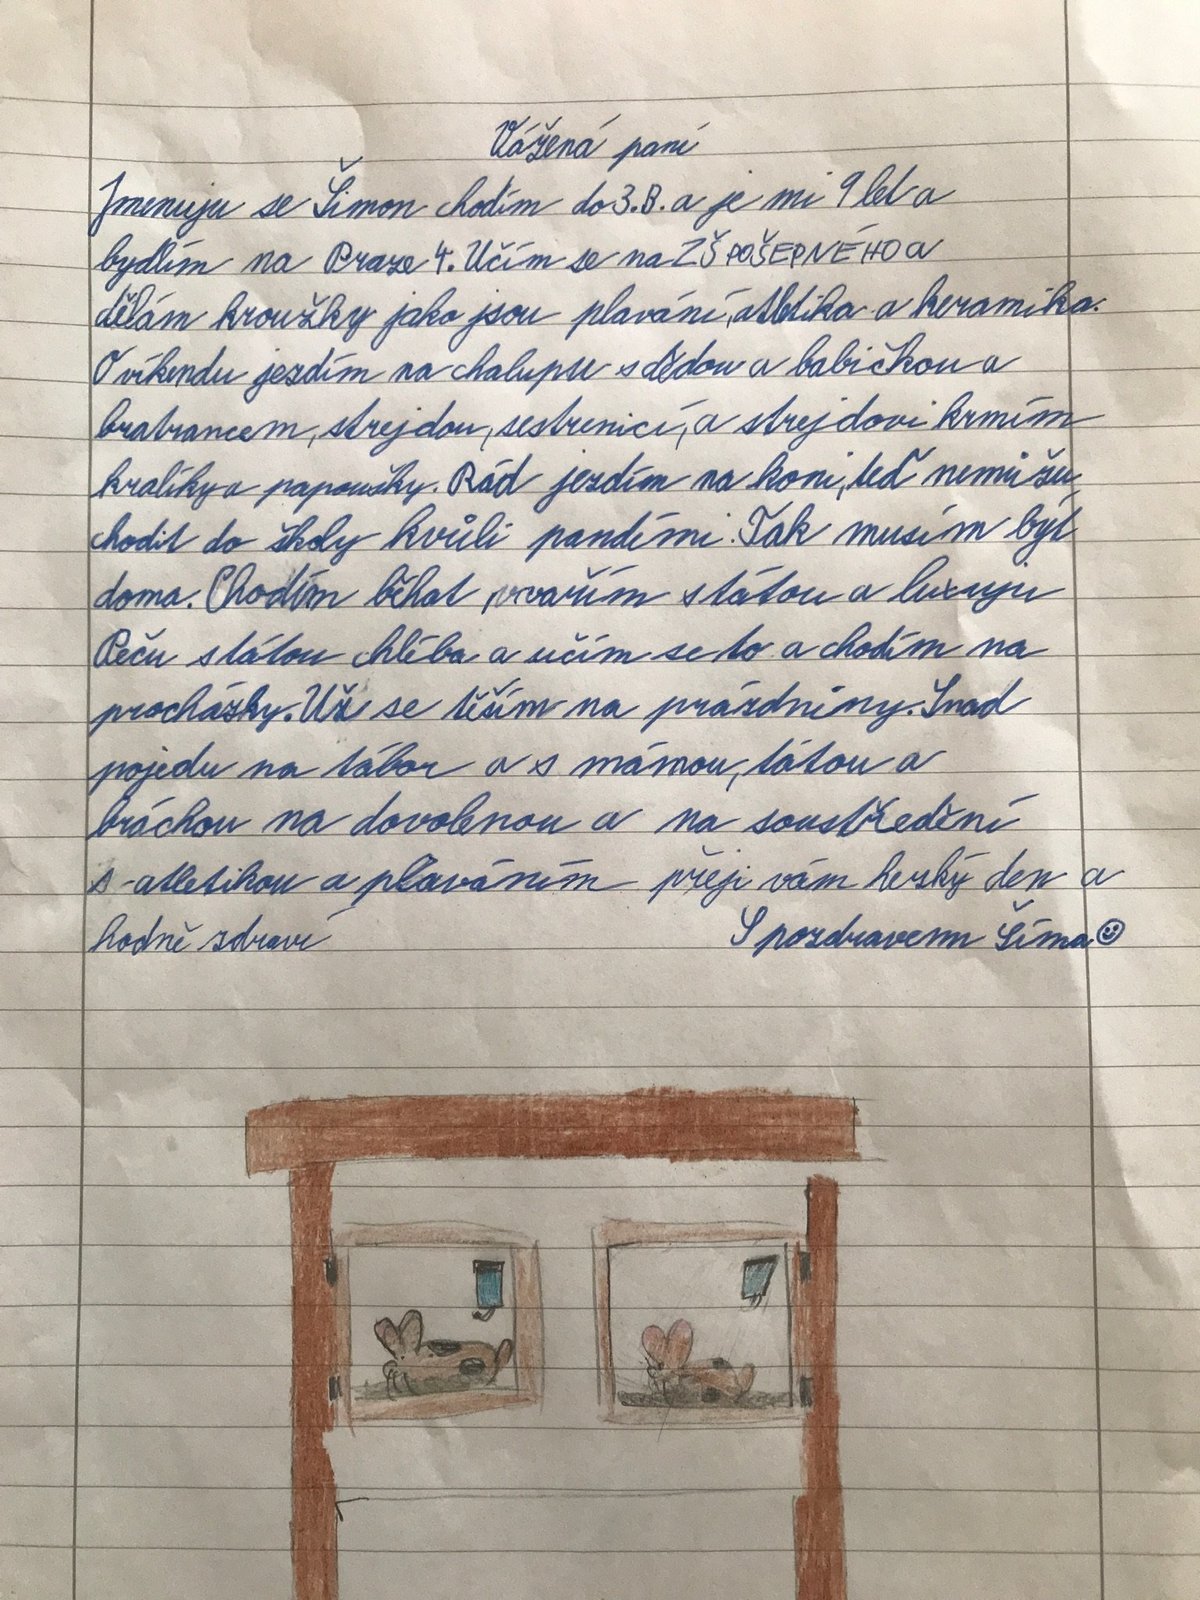 Vážená paní
Jmenuju se Šimon chodím do 3.B. a je mi 9 let a
bydlím na Praze 4. Učím se na ZŠ POŠEPNÉHO a
dělám kroužky jako jsou plavání, atletika a keramika.
O víkendu jezdím na chalupu s dědou a babičkou a
bratrancem, strejdou, sestřenicí, a strejdovi krmím
králíky a papoušky. Rád jezdím na koni, teď nemůžu
chodit do školy kvůli pandími. Tak musím být
doma. Chodím běhat, vařím s tátou a luxuju
Peču s tátou chleba a učím se to a chodím na
procházky. Už se těším na prázdniny. Snad
pojedu na tábor a s mámou, tátou a
bráchou na dovolenou a na soustředění
s atletikou a plaváním přeji vám heský den a
hodně zdraví S pozdravem Šíma☺